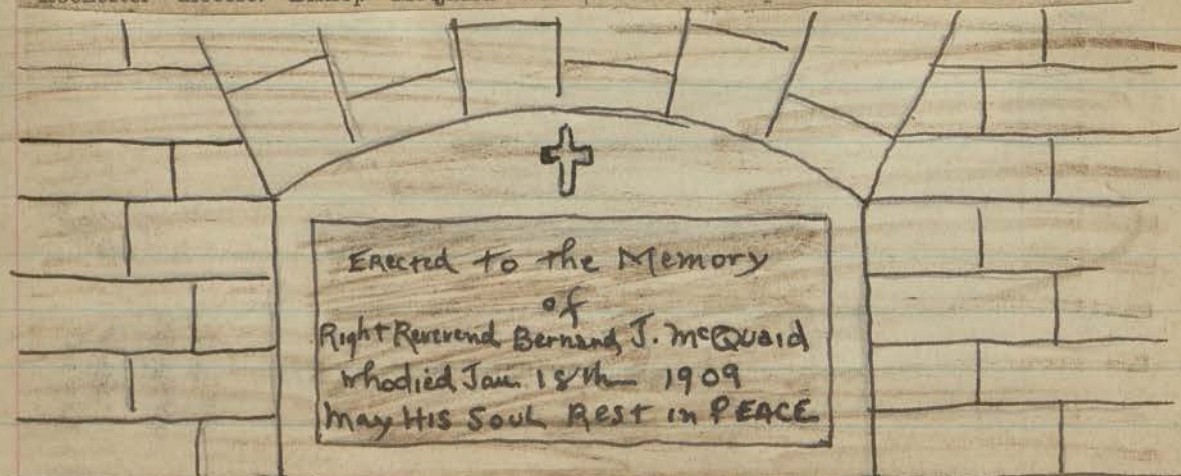 Erected to the Memory
of
Right Reverend Bernard J. McQuaid
who died Jan. 18th 1909
May His Soul Rest in PEACE